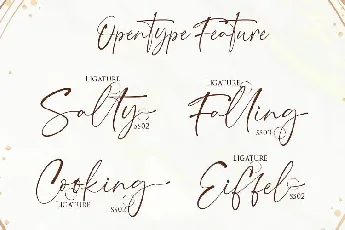 Opentype Feature
LIGATURE
LIGATURE
Salty
Falling
SS02
SS03
LIGATURE
Cooking
Eiffel
LIGATURE
SS02
SS02